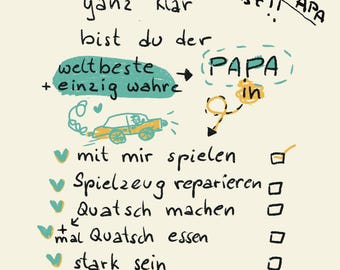 ganz klar
bist du der
weltbeste
+ einzig wahre → PAPA
in
mit mir spielen
Spielzeug reparieren
Quatsch machen
+ mal Quatsch essen
stark sein